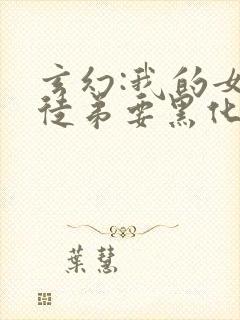 玄幻:我的女
徒弟要黑化
葉慧